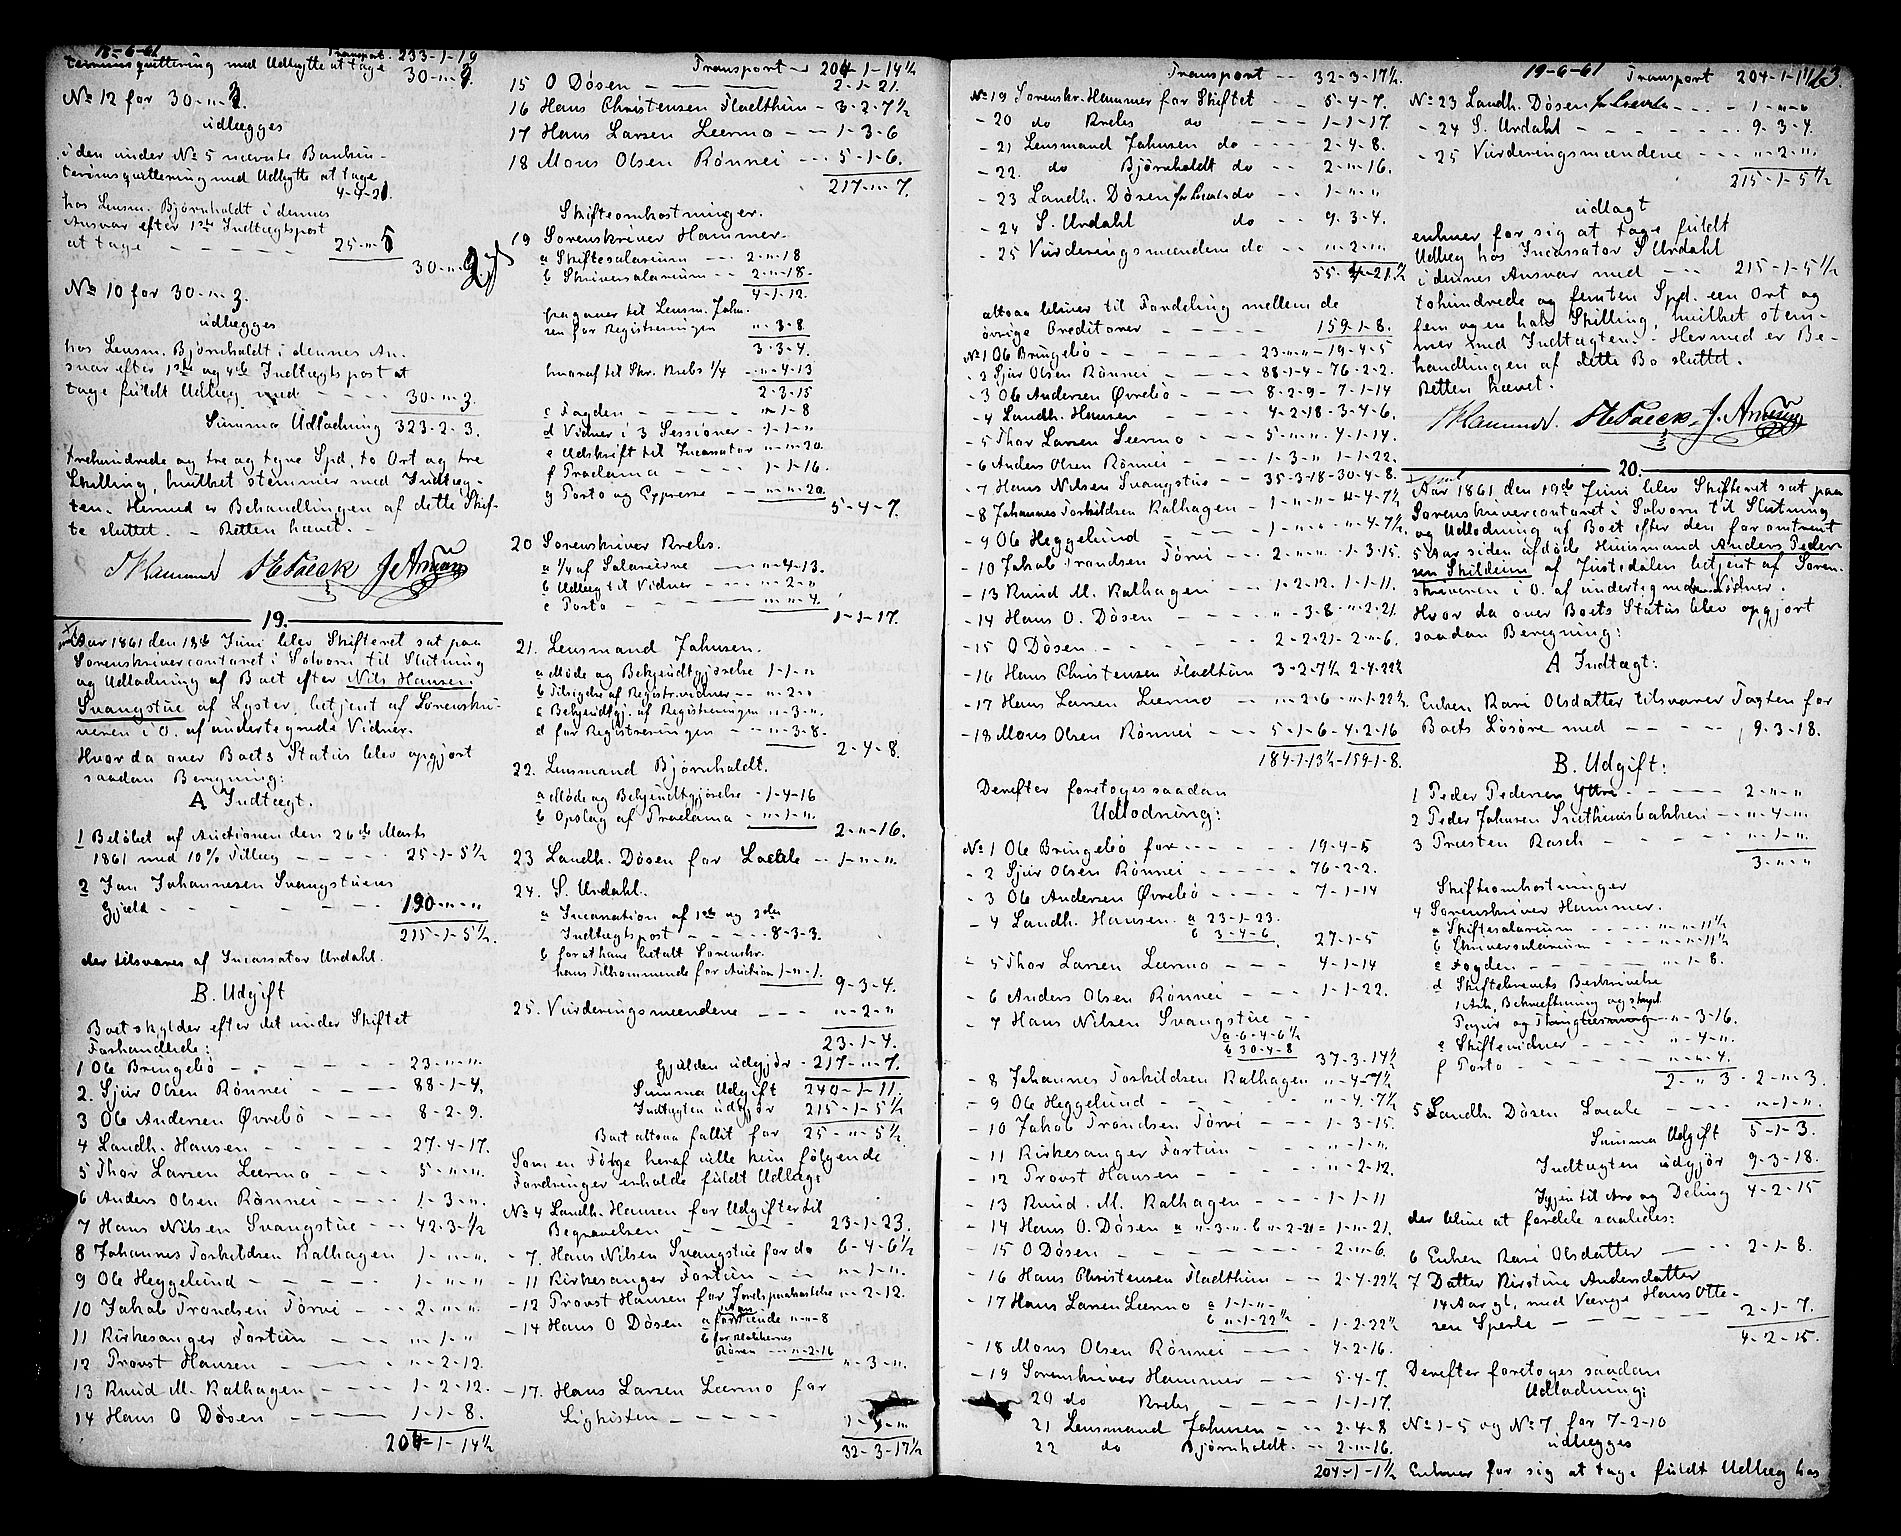 18-6-61
Transport. 233-1-19
terminsqvittering med Udbytte at tage 30-"-3.
No 12 for 30-"-3.
udlægges
i den under No 5 nævnte Bankin-
terimsqvittering med Udbytte at tage
4-4-21.
hos Lensm. Bjørnholdt i dennes
Ansvar efter 1ste Indtægtspost
at tage - - - - 25-"-5
30-"-2
No 10 for 30-"-3.
udlægges
hos Lensm. Bjørnholdt i dennes An-
svar efter 1ste og 4de Indtægtspost at
tage fuldt Udlæg med - - - - 30-"-3.
Summa Udlodning 323-2-3.
trehundrede og tre og tyve Spd, to Ort og tre
Skilling, hvilket stemmer med Indtæg-
ten. Hermed er Behandlingen af dette Skif-
te sluttet. - Retten hævet. -
19.
Aar 1861 den 18de Juni blev Skifteret sat paa
Sorenskrivercontoret i Solvorn til Slutning
og Udlodning af Boet efter Nils Hansen
Svangstue af Lyster, betjent af Sorenskri-
veren i O. af undertegnede Vidner.
Hvor da over Boets Status blev opgjort
saadan Beregning:
A Indtægt.
1 Beløbet af Auctionen den 26de Marts
1861 med 10% Tillæg - - - - 25-1-5½
2 Jan Johannesen Svangstuens
Gjæld - - - - - - 190-"-"
215-1-5½.
der tilsvares af Incassator Urdahl.
B. Udgift
Boet skylder efter det under Skiftet
Forhandlede:
1 Ole Bringebø - - - - - 23-"-".
2. Sjur Olsen Rønnei - - - 88-1-4.
3 Ole Andersen Øvrebø - - - - 8-2-9.
4 Landh. Hansen - - - - - 27-4-17.
5 Thor Larsen Leermo - - - 5-"-".
6 Anders Olsen Rønnei - - - - 1-3-".
7 Hans Nilsen Svangstue - - - 42-3-½
8 Johannes Torkildsen Kalhagen 1-"-".
9 Ole Heggelund - - - - - 1-"-"
10 Jakob Trondsen Tørvi - - - 2-"-".
11 Kirkesanger Fortun - - - "-1-"
12 Provst Hansen - - - - "-2-12.
13 Knud M. Kalhagen - - - - 1-2-12.
14 Hans O Døsen - - - 1-1-8.
204-1-14½
Transport - 204-1-14½
15 O Døsen - - - - 2-1-21.
16 Hans Christensen Fladthun - 3-2-7½
17 Hans Larsen Leermo - - - 1-3-6
18 Mons Olsen Rønnei - - - 5-1-6.
217-"-7.
Skifteomkostninger.
19 Sorenskriver Hammer.
a Skiftesalarium - - - 2-"-18
b Skriversalarium - - 2-"-18.
4-1-12.
fragaaer til Lensm. Jahn-
sen for Registreringen "-3-8
3-3-4.
hvoraf til Skr. Krebs ¼ - "-4-13
2-3-15
c Fogden - - - - - "-1-8
d Vidner i 3 Sessioner - 1-1-"
e Udskrift til Incassator "-"-20.
f Proclama - - - - 1-1-16.
g Porto og Expresse - - "-"-20.
5-4-7.
20 Sorenskriver Krebs.
a ¼ af Salarierne - - "-4-13.
b Udlæg til Vidner - - - "-2-"
c Porto - - - - "-"-4.
1-1-17.
21. Lensmand Jahnsen.
a Møde og Bekjendtgjørelse 1-1-"
b Tilsigelse af Registr.vidner - - "-2-"
c Bekjendtgj. af Registreringen "-3-".
d for Registreringen - - - "-3-8.
2-4-8.
22. Lensmand Bjørnholdt.
a Møde og Bekjendtgjørelse - 1-4-16
b Opslag af Proclama - "-1-".
2-"-16.
23 Landh. Døsen for Locale - - 1-"-"
24. S. Urdahl.
a Incassation af 1ste og 2den
Indtægtspost - - - - - 8-3-3.
b for at have betalt Sorenskr.
hans Tilkommende for Auction 1-"-1.
9-3-4.
25. Vurderingsmændene - - - "-2-"
23-1-4.
Gjælden udgjør - 217-"-7.
Summa Udgift 240-1-11.
Indtægten udgjør 215-1-5½
Boet altsaa fallit for 25-"-5½.
Som en Følge heraf ville kun følgende
Fordringer erholde fuldt Udlæg:
No 4 Landh. Hansen for Udgifter til
Begravelsen - - - - - 23-1-23.
- 7. Hans Nilsen Svangstue for do 6-4-6½
- 11 Kirkesanger Fortun - - - "-1-".
- 12 Provst Hansen for Jordspaakastelse "-2-12.
- 14 Hans O Døsen a for "-"-8
b for Klokkernes
Røren - - - "-2-16
"-3-".
- 17. Hans Larsen Leermo for
Ligkisten - - - - - 1-1-"
32-3-17½
Transport - - 32-3-17½.
No 19 Sorenskr. Hammer for Skiftet - - 5-4-7.
- 20 do Krebs do - - - 1-1-17.
- 21 Lensmand Jahnsen do - - - 2-4-8.
- 22. do Bjørnholdt do - - - 2-"-16.
- 23 Landh. Døsen for Locale do - - - 1-"-"
- 24 S. Urdahl do - - 9-3-4.
- 25 Vurderingsmændene do - - "-2-"
55-4-21½
altsaa bliver til Fordeling mellem de
øvrige Creditorer - - - - - 159-1-8.
No 1 Ole Bringebø - - - - - - 23-"-" - 19-4-5
- 2 Sjur Olsen Rønnei - - - - - 88-1-4 - 76-2-2.
- 3 Ole Andersen Øvrebø - - - 8-2-9 - 7-1-14
- 4 Landh. Hansen - - - - 4-2-18 - 3-4-6.
- 5 Thor Larsen Leermo - - - 5-"-" - 4-1-14.
- 6 Anders Olsen Rønnei - - - - 1-3-" 1-1-22.
- 7 Hans Nilsen Svangstue - - - 35-3-18 - 30-4-8.
- 8 Johannes Torkildsen Kalhagen - 1-"-" - "-4-7½
- 9 Ole Heggelund - - - 1-"-" - "-4-7½.
- 10 Jakob Trondsen Tørvi - - - 2-"-" - 1-3-15.
- 13 Knud M. Kalhagen - - - 1-2-12. 1-1-11.
- 14 Hans O. Døsen - - - "-3-8 - "-2-21
- 15 O Døsen - - - - - 2-2-21 - 2-"-6.
- 16 Hans Christensen Fladthun 3-2-7½ 2-4-22½
- 17 Hans Larsen Leermo - - "-2-6 - "-1-22½.
- 18 Mons Olsen Rønnei - - - 5-1-6 - 4-2-16
184-1-13½ - 159-1-8.
Derefter foretoges saadan
Udlodning:
No 1 Ole Bringebø for - - - - - 19-4-5
- 2 Sjur Olsen Rønnei - - - - - - 76-2-2.
- 3 Ole Andersen Øvrebø - - - - 7-1-14
- 4 Landh. Hansen. a 23-1-23.
b 3-4-6. 27-1-5
- 5 Thor Larsen Leermo - - - - 4-1-14
- 6 Anders Olsen Rønnei - - - 1-1-22.
- 7 Hans Nilsen Svangstue - -
a 6-4-6½
b 30-4-8
37-3-14½
- 8 Johannes Torkildsen Kalhagen "-4-7½
- 9 Ole Heggelund - - - - - - "-4-7½
- 10 Jakob Trondsen Tørvi - - - 1-3-15.
- 11 Kirkesanger Fortun - - - - "-1-"
- 12 Provst Hansen - - - - - "-2-12.
- 13 Knud. M. Kalhagen - - - - 1-1-11
- 14 Hans O. Døsen a "-3-" b "-2-21 = 1-"-21.
- 15 O Døsen - - - - - - 2-"-6.
- 16 Hans Christensen Fladthun - - 2-4-22½
- 17 Hans Larsen Leermo a 1-1-"-
b "-1-22½ - 1-2-22½
- 18 Mons Olsen Rønnei - - - 4-2-16.
- 19 Sorenskriver Hammer - - - 5-4-7.
20 do Krebs - - - - 1-1-17.
21 Lensmand Jahnsen - - 2-4-8
22 do Bjørnholdt. - - 2-"-16.
204-1-1½
19-6-61
Transport 204-1-1½
123.
No 23 Landh. Døsen for Locale - - - 1-"-"
- 24 S. Urdahl - - - - - - 9-3-4.
- 25 Vurderingsmændene - - - "-2-".
215-1-5½
udlagt
enhver for sig at tage fuldt
Udlæg hos Incassator S Urdahl
i dennes Ansvar med - - - 215-1-5½
tohundrede og femten Spd. een Ort og
fem og en halv Skilling, hvilket stem-
mer med Indtægten. - Hermed er Be-
handlingen af dette Bo sluttet.
Retten hævet.
20.
Aar 1861 den 19de Juni blev Skifteret sat paa
Sorenskrivercontoret i Solvorn til Slutning
og Udlodning af Boet efter den for omtrent
5 Aar siden afdøde Huusmand Anders Peder-
sen Skildeim af Justedalen betjent af Soren-
skriveren i O. af undertegnede Vidner.
Hvor da over Boets Status blev opgjort
saadan Beregning:
A Indtægt:
Enken Kari Olsdatter tilsvarer Taxten for
Boets Løsøre med - - - - - 9-3-18.
B. Udgift:
1 Peder Pedersen Yttri - - - - 2-"-"
2 Peder Johnsen Snethunsbakken - - "-4-".
3 Præsten Rasch - - - - - "-1-".
3-"-"
Skifteomkostninger
4 Sorenskriver Hammer.
a Skiftesalarium - - - - - "-"-11½
b Skriversalarium - - - "-"-11½
c Fogden - - - - - - "-1-8.
d Skiftebrevets Beskrivelse
1 Ark, Bekræftning og stempl.
Papir og Thinglæsning - "-3-16.
e Skiftevidner - - - - - "-4-"
f Porto - - - - - - "-"-4.
2-"-3 - 2-"-3.
5 Landh. Døsen Locale - - - - "-1-".
Summa Udgift 5-1-3.
Indtægten udgjør 9-3-18.
Igjen til Arv og Deling 4-2-15
der blive at fordele saaledes:
6 Enken Kari Olsdatter - - - 2-1-8.
7 Datter Kirstine Andersdatter
14 Aar gl, med Værge Hans Otte-
sen Sperle - - - - - - 2-1-7.
4-2-15.
Derefter foretoges saadan
Udlodning:
No 1-5 og No 7 for 7-2-10
udlægges
Enhver for sig at tage fuldt Udlæg hos